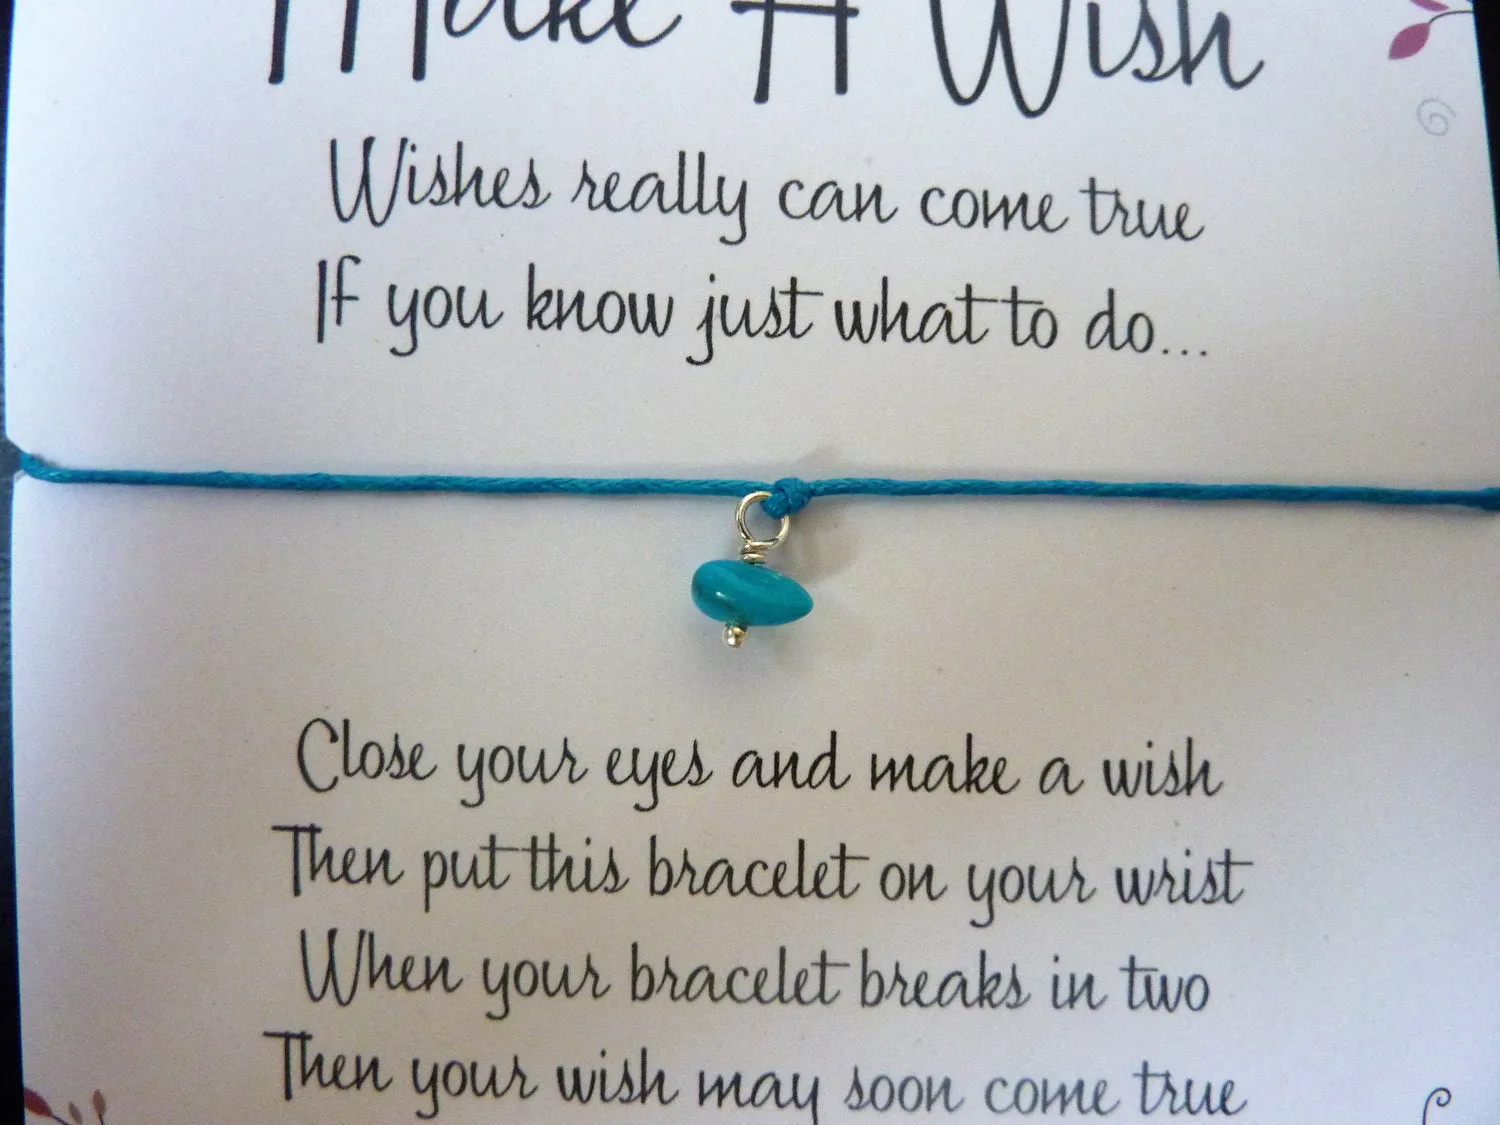 Make A Wish
Wishes really can come true
If you know just what to do...
Close your eyes and make a wish
Then put this bracelet on your wrist
When your bracelet breaks in two
Then your wish may soon come true